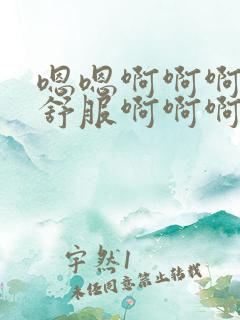 嗯嗯啊啊啊
舒服啊啊啊
宇然1
未经同意禁止转载